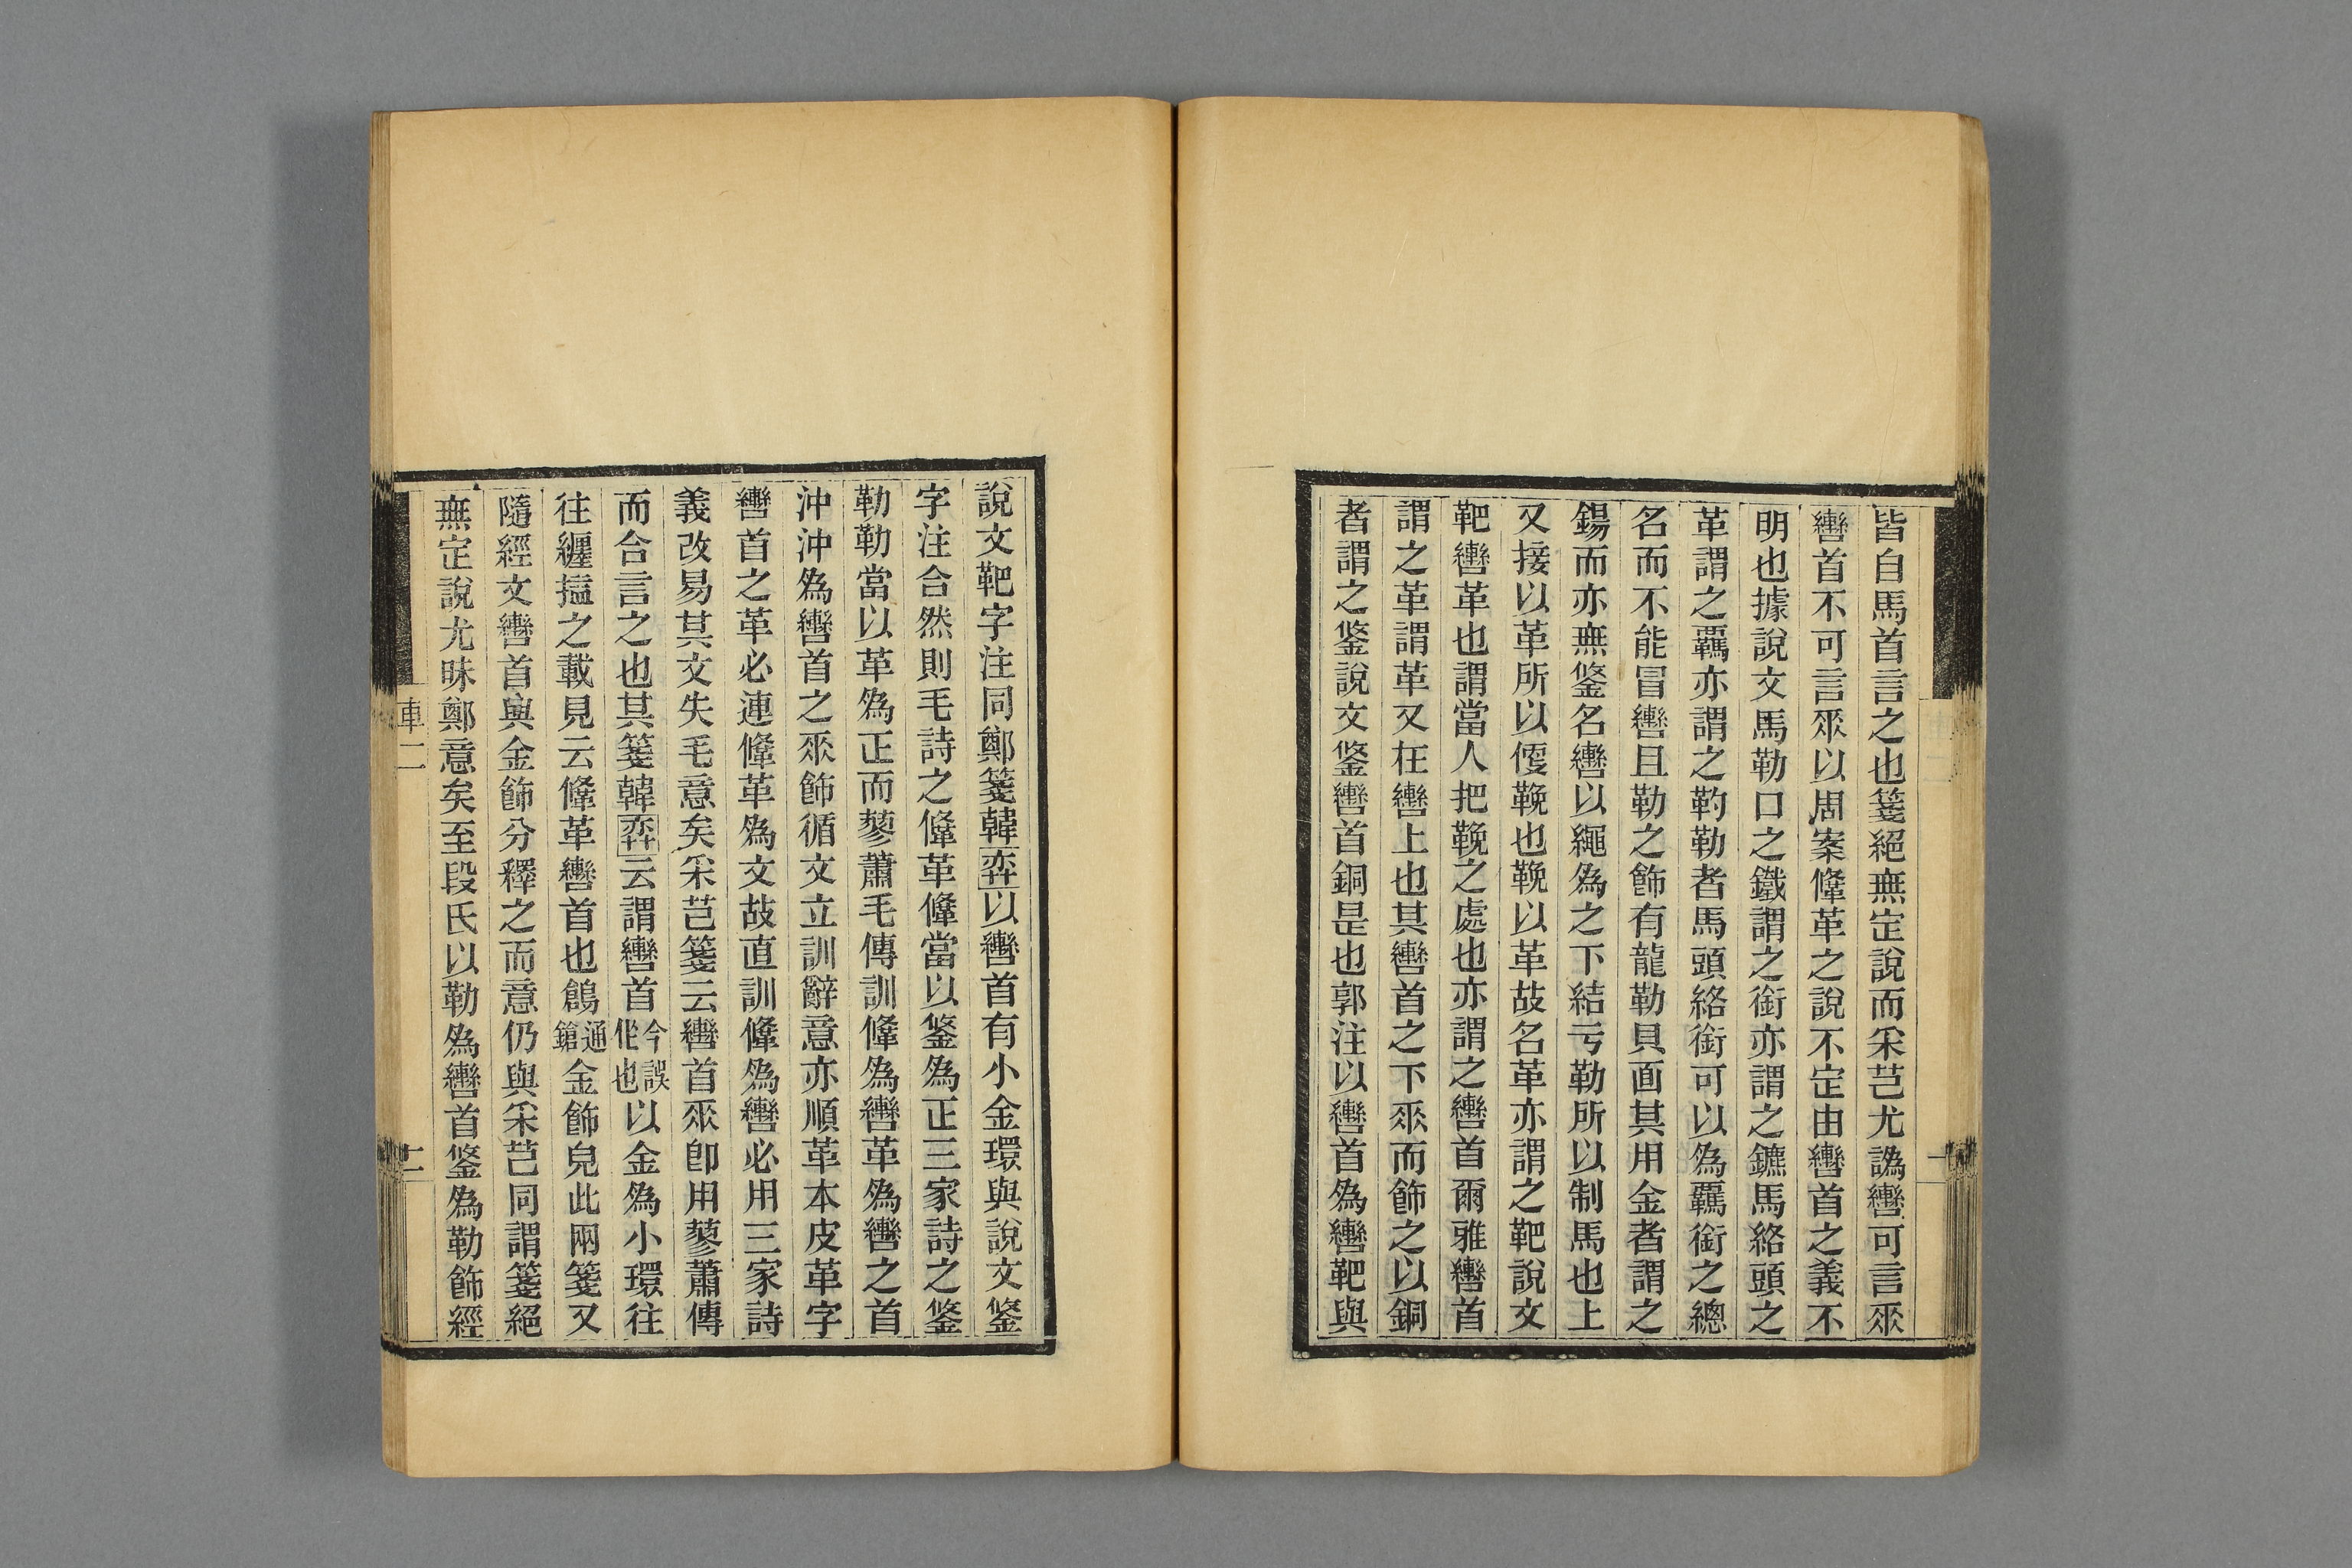 皆自馬首言之也箋絕無定說而采芑尤譌轡可言垂
轡首不可言垂以周案鞗革之說不定由轡首之義不
明也據說文馬勒口之鐵謂之銜亦謂之鑣馬絡頭之
革謂之羈亦謂之靮勒者馬頭絡銜可以為羈銜之總
名而不能冒轡且勒之飾有龍勒貝面其用金者謂之
鍚而亦無鋚名轡以繩為之下結亏勒所以制馬也上
又接以革所以偃鞔也鞔以革故名革亦謂之靶說文
靶轡革也謂當人把鞔之處也亦謂之轡首爾雅轡首
謂之革謂革又在轡上也其轡首之下垂而飾之以銅
者謂之鋚說文鋚轡首銅是也郭注以轡首為轡靶與
說文靶字注同鄭箋韓奕以轡首有小金環與說文鋚
字注合然則毛詩之鞗革鞗當以鋚為正三家詩之鋚
勒勒當以革為正而蓼蕭毛傳訓鞗為轡革為轡之首
沖沖為轡首之垂飾循文立訓辭意亦順革本皮革字
轡首之革必連鞗革為文故直訓鞗為轡必用三家詩
義改易其文失毛意矣采芑箋云轡首垂即用蓼蕭傳
而合言之也其箋韓奕云謂轡首今誤作也以金為小環往
往纏搤之載見云鞗革轡首也鶬通鎗金飾皃此兩箋又
隨經文轡首與金飾分釋之而意仍與采芑同謂箋絕
無定說尤昧鄭意矣至段氏以勒為轡首鋚為勒飾經
車二
二